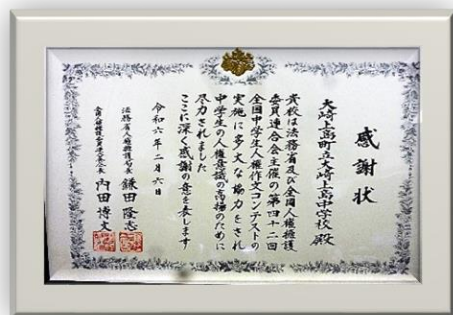 感謝状
大崎上島町立大崎上島中学校 殿
貴校は法務省及び全国人権擁護
委員連合会主催の第四十二回
全国中学生人権作文コンテストの
実施に多大な協力をされ
中学生の人権意識の高揚のために
尽力されました
ここに深く感謝の意を表します
令和六年二月六日
法務省人権擁護局長 鎌田隆志
全国人権擁護委員連合会会長 内田博文